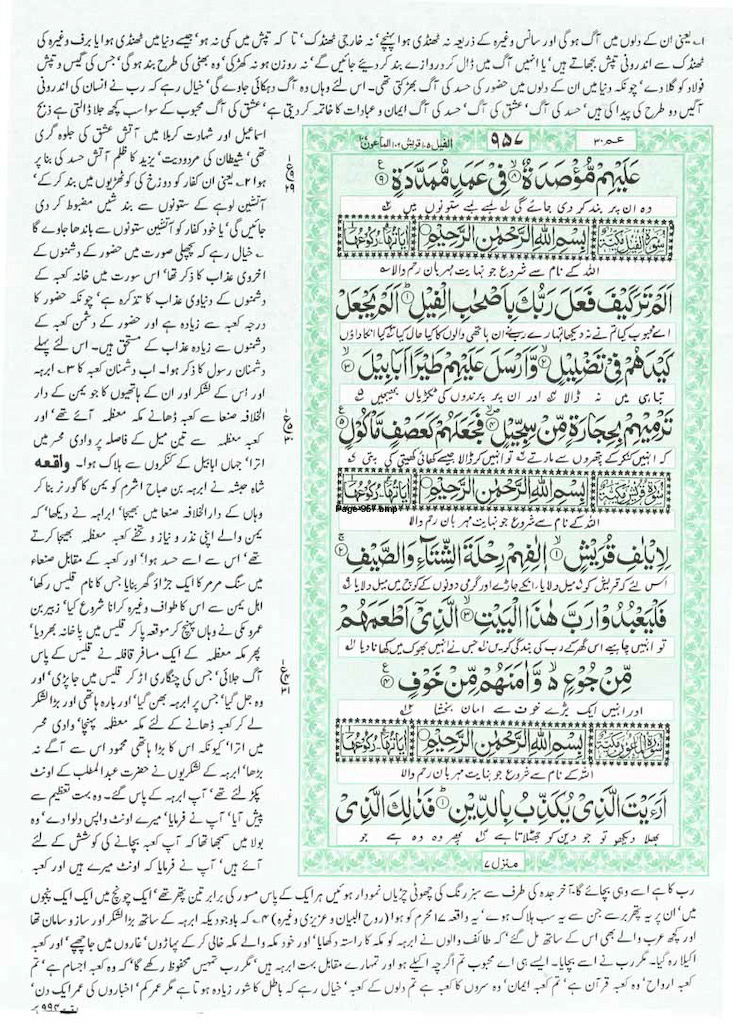 ۱؎ یعنی ان کے دلوں میں آگ ہوگی اور سانس وغیرہ کے ذریعہ نہ ٹھنڈی ہوا پہنچے، نہ خارجی ٹھنڈک، تا کہ تپش میں کمی نہ ہو، جیسے دنیا میں ٹھنڈی ہوا یا برف وغیرہ کی
ٹھنڈک سے اندرونی تپش بجھاتے ہیں، یا انہیں آگ میں ڈال کر دروازے بند کر دیئے جائیں گے، نہ روزن ہو نہ کھڑکی، وہ بھٹی کی طرح بند ہوگی، جس کی گیس و تپش
فولاد کو گلا دے، چونکہ دنیا میں ان کے دلوں میں حضور کی حسد کی آگ بھڑکتی تھی۔ اس لئے وہاں وہ آگ دہکائی جاوے گی، خیال رہے کہ رب نے انسان کی اندرونی
آگیں دو طرح کی پیدا کی ہیں، حسد کی آگ، عشق کی آگ، حسد کی آگ ایمان و عبادات کا خاتمہ کر دیتی ہے، عشق کی آگ محبوب کے سوا سب کچھ جلا ڈالتی ہے ذبح
عمّ ۳۰
۹۵۷
الفیل ۱۰۵ قریش ۱۰۶ الماعون ۱۰۷
عَلَيْهِمْ مُّؤْصَدَةٌ ۙ۸ فِيْ عَمَدٍ مُّمَدَّدَةٍ ۹
وہ ان پر بند کر دی جائے گی لمبے لمبے ستونوں میں
سُوْرَةُ الْفِيْلِ مَكِّيَّةٌ
بِسْمِ اللّٰهِ الرَّحْمٰنِ الرَّحِيْمِ
اٰيَاتُهَا ۵ رُكُوْعُهَا ۱
اللہ کے نام سے شروع جو نہایت مہربان رحم والا
اَلَمْ تَرَ كَيْفَ فَعَلَ رَبُّكَ بِاَصْحٰبِ الْفِيْلِ ۱ اَلَمْ يَجْعَلْ
اے محبوب کیا تم نے نہ دیکھا تمہارے رب نے ان ہاتھی والوں کا کیا حال کیا کیا ان کا داؤں
كَيْدَهُمْ فِيْ تَضْلِيْلٍ ۲ وَّاَرْسَلَ عَلَيْهِمْ طَيْرًا اَبَابِيْلَ ۳
تباہی میں نہ ڈالا اور ان پر پرندوں کی ٹکڑیاں بھیجیں
تَرْمِيْهِمْ بِحِجَارَةٍ مِّنْ سِجِّيْلٍ ۴ فَجَعَلَهُمْ كَعَصْفٍ مَّاْكُوْلٍ ۵
کہ انہیں کنکر کے پتھروں سے مارتے تو انہیں کر ڈالا جیسے کھائی کھیتی کی پتی
سُوْرَةُ قُرَيْشٍ مَكِّيَّةٌ
بِسْمِ اللّٰهِ الرَّحْمٰنِ الرَّحِيْمِ
اٰيَاتُهَا ۴ رُكُوْعُهَا ۱
Page-957.bmp
اللہ کے نام سے شروع جو نہایت مہربان رحم والا
لِاِيْلٰفِ قُرَيْشٍ ۱ اٖلٰفِهِمْ رِحْلَةَ الشِّتَآءِ وَالصَّيْفِ ۲
اس لئے کہ قریش کو میل دلایا، انکے جاڑے اور گرمی دونوں کے کوچ میں میل دلایا
فَلْيَعْبُدُوْا رَبَّ هٰذَا الْبَيْتِ ۳ الَّذِيْٓ اَطْعَمَهُمْ
تو انہیں چاہیے اس گھر کے رب کی بندگی کریں جس نے انہیں بھوک میں کھانا دیا
مِّنْ جُوْعٍ ۙ۬ وَّاٰمَنَهُمْ مِّنْ خَوْفٍ ۴
اور انہیں ایک بڑے خوف سے امان بخشا
سُوْرَةُ الْمَاعُوْنِ مَكِّيَّةٌ
بِسْمِ اللّٰهِ الرَّحْمٰنِ الرَّحِيْمِ
اٰيَاتُهَا ۷ رُكُوْعُهَا ۱
اللہ کے نام سے شروع جو نہایت مہربان رحم والا
اَرَءَيْتَ الَّذِيْ يُكَذِّبُ بِالدِّيْنِ ۱ فَذٰلِكَ الَّذِيْ
بھلا دیکھو تو جو دین کو جھٹلاتا ہے پھر وہ وہ ہے جو
منزل ۷
اسماعیل اور شہادت کربلا میں آتش عشق کی جلوہ گری
تھی، شیطان کی مردودیت، یزید کا ظلم آتش حسد کی بنا پر
ہوا ۲؎ یعنی ان کفار کو دوزخ کی کوٹھڑیوں میں بند کر کے،
آتشین لوہے کے ستونوں سے بندشیں مضبوط کر دی
جائیں گی، یا خود کفار کو آتشین ستونوں سے باندھا جاوے گا
خیال رہے کہ پچھلی صورت میں حضور کے دشمنوں کے
اخروی عذاب کا ذکر تھا، اس سورت میں خانہ کعبہ کے
دشمنوں کے دنیاوی عذاب کا تذکرہ ہے، چونکہ حضور کا
درجہ کعبہ سے زیادہ ہے اور حضور کے دشمن کعبہ کے
دشمنوں سے زیادہ عذاب کے مستحق ہیں۔ اس لئے پہلے
دشمنان رسول کا ذکر ہوا۔ اب دشمنان کعبہ کا ۳؎ ابرہہ
اور اس کے لشکر اور ان کے ہاتھیوں کا جو یمن کے دار
الخلافہ صنعا سے کعبہ ڈھانے مکہ معظمہ آئے تھے اور
کعبہ معظمہ سے تین میل کے فاصلہ پر وادی محسر میں
اترا، جہاں ابابیل کے کنکروں سے ہلاک ہوا۔ واقعہ
شاہ حبشہ نے ابرہہ بن صباح اشرم کو یمن کا گورنر بنا کر
وہاں کے دارالخلافہ صنعا میں بھیجا، ابراہہ نے دیکھا، کہ
یمن والے اپنی نذر و نیاز و تحفے کعبہ معظمہ بھیجا کرتے
تھے، اس سے اسے حسد ہوا، اور کعبہ کے مقابل صنعاء
میں سنگ مرمر کا ایک جڑاؤ گھر بنایا جس کا نام قلیس رکھا،
اہل یمن سے اس کا طواف وغیرہ کرانا شروع کیا، زہیر بن
عمرو مکی نے وہاں پہنچ کر موقعہ پا کر قلیس میں پاخانہ بھر دیا،
پھر مکہ معظمہ کے ایک مسافر قافلہ نے قلیس کے پاس
آگ جلائی، جس کی چنگاری اڑ کر قلیس میں جا پڑی، اور
وہ جل گیا، جس پر ابرہہ بھن گیا، اور بارہ ہاتھی اور بڑا لشکر
لے کر کعبہ ڈھانے کے لئے مکہ معظمہ پہنچا، وادی محسر
میں اترا، کیونکہ اس کا بڑا ہاتھی محمود اس سے آگے نہ
بڑھا، ابرہہ کے لشکریوں نے حضرت عبدالمطلب کے اونٹ
پکڑ لئے تھے، آپ ابرہہ کے پاس گئے۔ وہ بہت تعظیم سے
پیش آیا، آپ نے فرمایا، میرے اونٹ واپس دلوا دے، وہ
بولا میں سمجھا تھا کہ آپ کعبہ بچانے کی کوشش کے لئے
آئے ہیں، آپ نے فرمایا کہ اونٹ میرے ہیں اور کعبہ
رب کا ہے اسے وہی بچائے گا۔ آخر جدہ کی طرف سے سبز رنگ کی چھوٹی چڑیاں نمودار ہوئیں ہر ایک کے پاس مسور کی برابر تین پتھر تھے، ایک چونچ میں ایک ایک پنجوں
میں، ان پر یہ پتھر برسے جن سے یہ سب ہلاک ہوے، یہ واقعہ ۱۷ محرم کو ہوا (روح البیان و عزیزی وغیرہ) ۴؎ کہ باوجودیکہ ابرہہ کے ساتھ بڑا لشکر اور ساز و سامان تھا
اور کچھ عرب والے بھی اس کے ساتھ مل گئے، کہ طائف والوں نے ابرہہ کو مکہ کا راستہ دکھایا، اور خود مکہ والے مکہ خالی کر کے پہاڑوں، غاروں میں جا چھپے، اور کعبہ
اکیلا رہ گیا۔ مگر رب نے اسے بچایا۔ ایسے ہی اے محبوب تم اگرچہ اکیلے ہو اور تمہارے مقابل بہت ابرہہ ہیں، مگر رب تمہیں محفوظ رکھے گا، کہ وہ کعبہ اجسام ہے، تم
کعبہ ارواح، وہ کعبہ قرآن ہے، تم کعبہ ایمان، وہ سروں کا کعبہ ہے تم دلوں کے کعبہ، خیال رہے کہ باطل کا شور زیادہ ہوتا ہے مگر عمر کم، اخباروں کی عمر ایک دن،